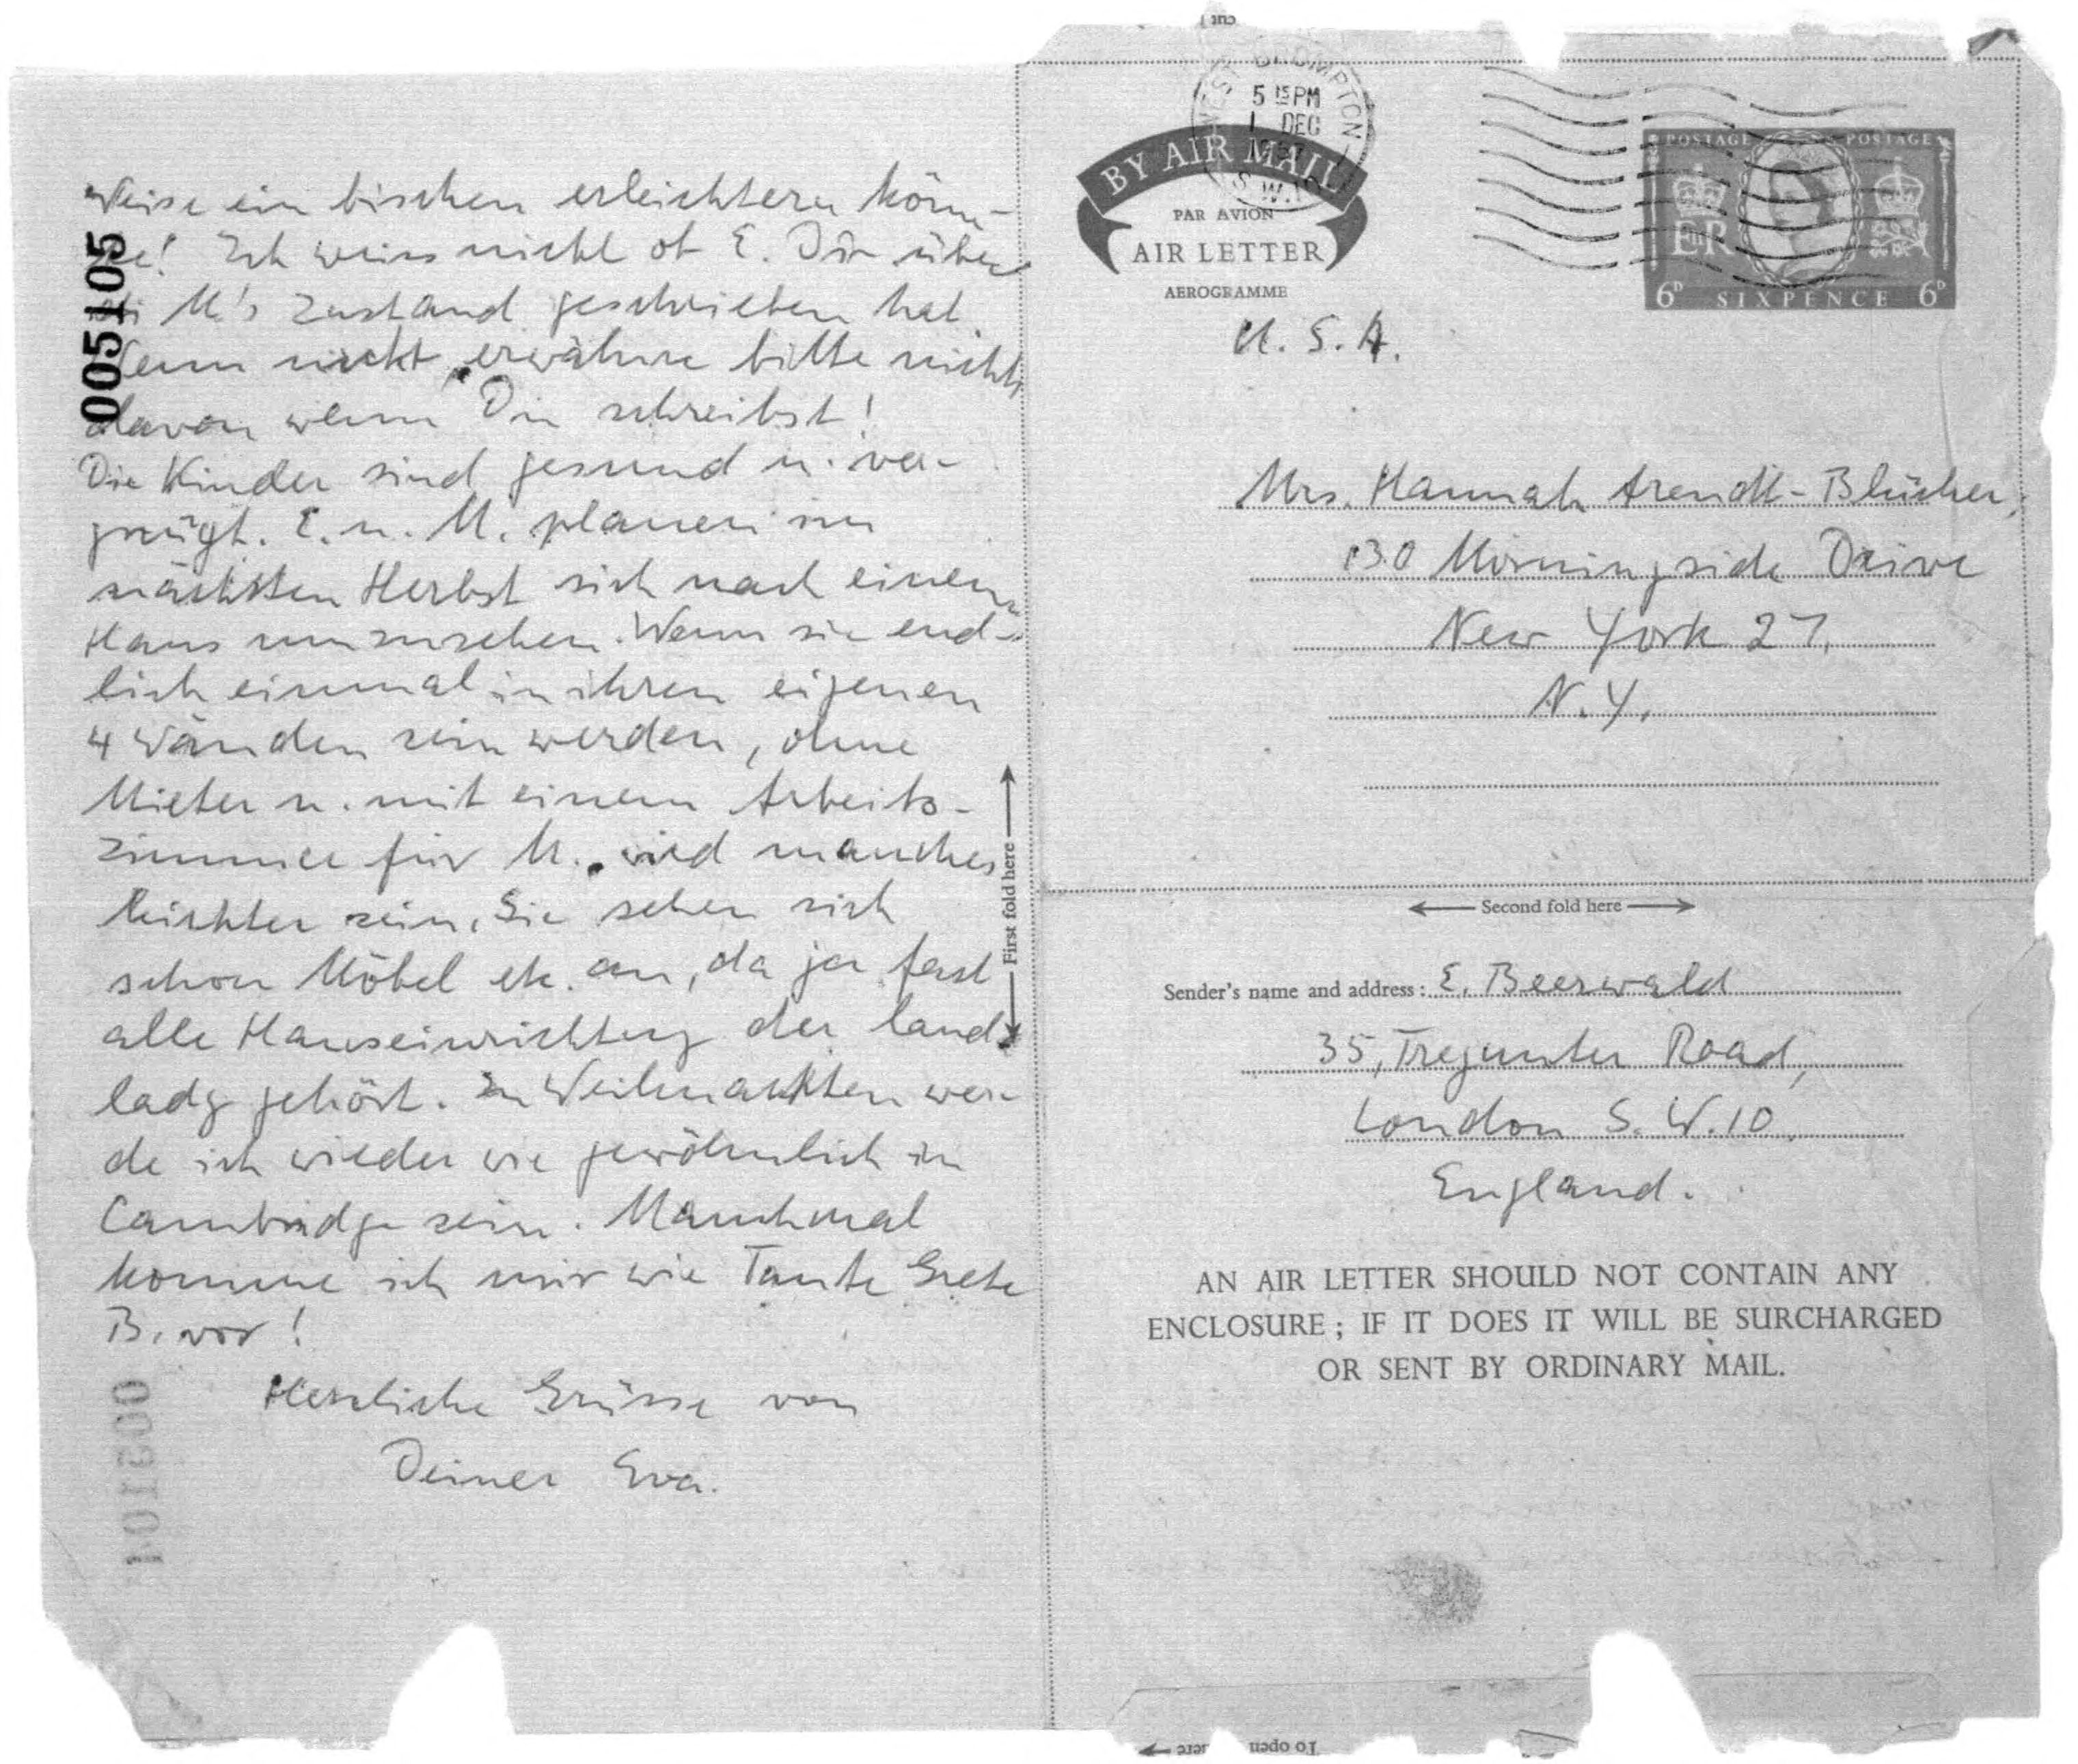 Weise ein bischen erleichtern könn-
te! Ich weiss nicht ob E. Dir über
M's Zustand geschrieben hat.
Wenn nicht, erwähne bitte nichts
davon wenn Du schreibst!
Die Kinder sind gesund u. ver-
gnügt. E. u. M. planen im
nächsten Herbst sich nach einem
Haus umzusehen. Wenn sie end-
lich einmal in ihren eigenen
4 Wänden sein werden, ohne
Mieter u. mit einem Arbeits-
zimmer für M. wird manches
leichter sein. Sie sehen sich
schon Möbel etc. an, da ja fast
alle Hauseinrichtung der land-
lady gehört. Zu Weihnachten wer-
de ich wieder wie gewöhnlich in
Cambridge sein. Manchmal
komme ich mir wie Tante Grete
B. vor!
Herzliche Grüsse von
Deiner Eva.
005105
005104
cut
WEST BROMPTON
5 15 PM
1 DEC
S.W.10
BY AIR MAIL
PAR AVION
AIR LETTER
AEROGRAMME
POSTAGE POSTAGE
E II R
6D SIXPENCE 6D
U.S.A.
Mrs. Hannah Arendt-Blücher,
130 Morningside Drive
New York 27,
N.Y.
First fold here
Second fold here
Sender's name and address: E. Beerwald
35, Tregunter Road,
London S.W.10.
England.
AN AIR LETTER SHOULD NOT CONTAIN ANY
ENCLOSURE; IF IT DOES IT WILL BE SURCHARGED
OR SENT BY ORDINARY MAIL.
To open here